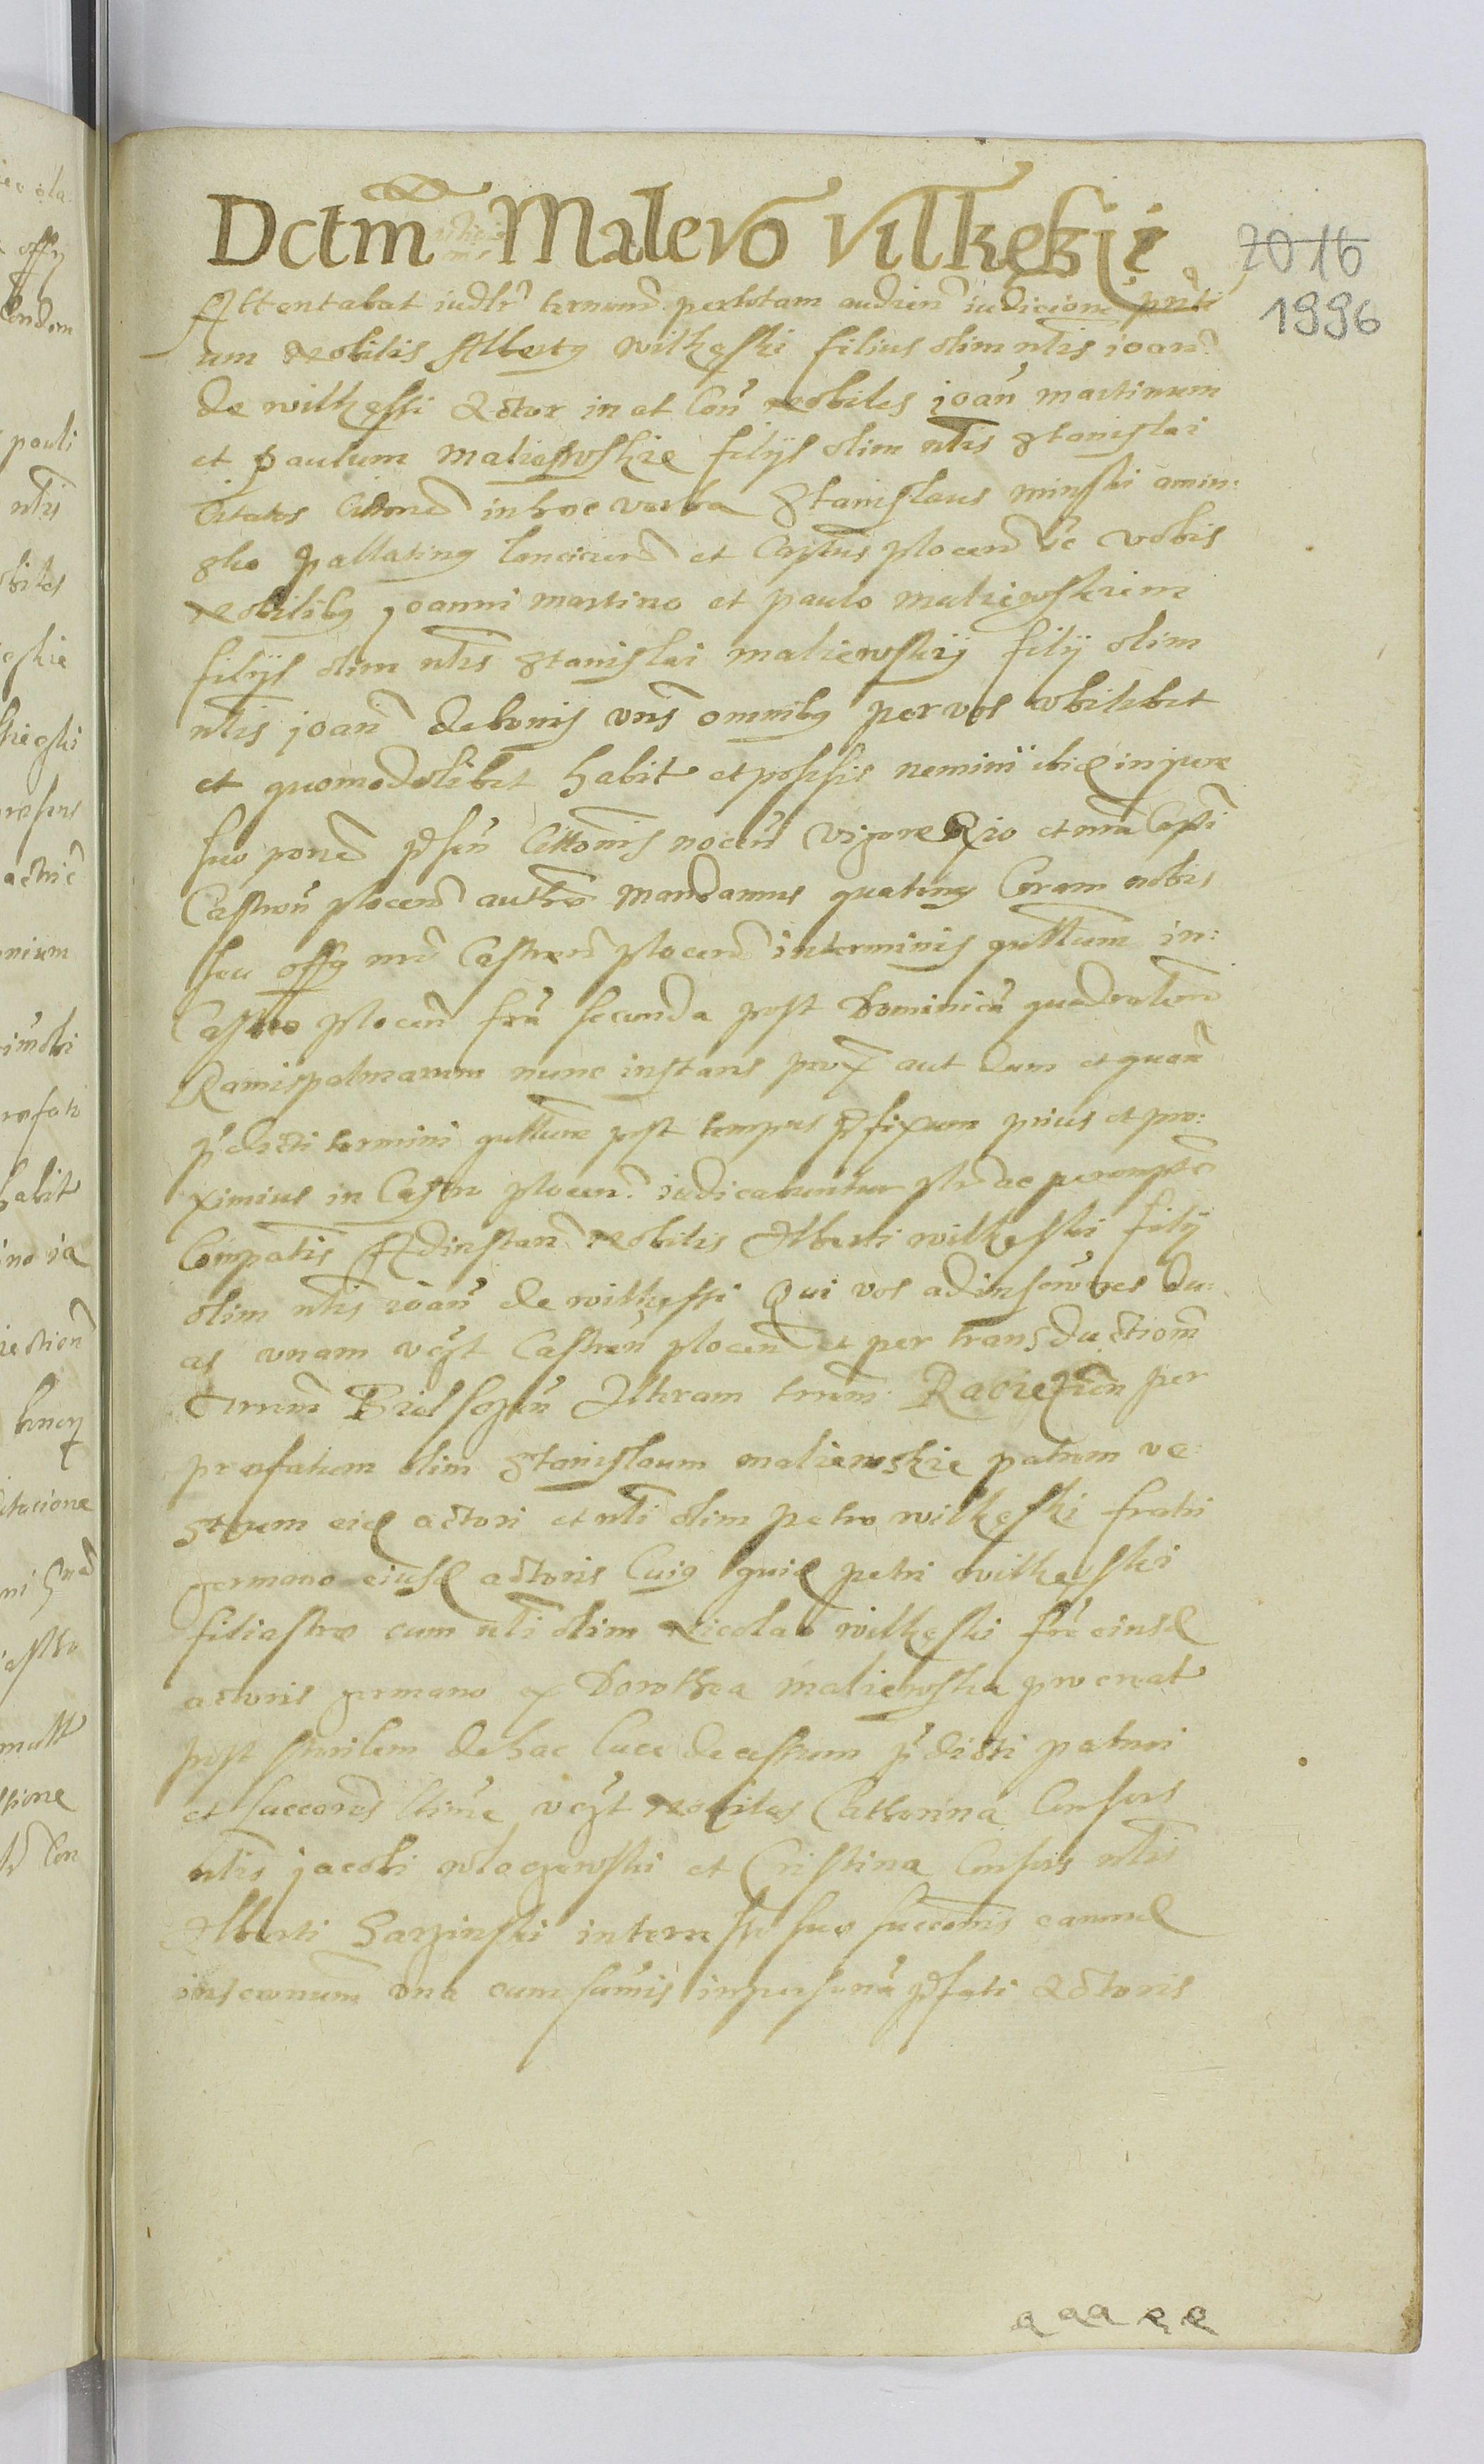 Dctm Malevo Vilkęskie
2016
1996
Attentabat iudlr termm pertotam audien iudicione prnti
um Nobilis Albertg wilkęski filius olim nlis joan
de wilkęssi Actor in et Con Nobiles joan martinum
et paulum maliewskie filijs olim nlis Stanislai
Citatos Cittone in hoc verba Stanislaus minski amin:
sko pallating lancicien et Captus plocen etc vobis
Nobilibg joanni martino et paulo maliewskiem
filijs olim nlis Stanislai maliewskij filij olim
nlis joan debonis vris omnibg per vos vbilibet
et quomodolibet habit et possessis nemini ibiq in jure
suo pone pſen Cittonis nocen vigore Rgio et nra Capti
Castren plocen autho Mandamus quating Coram nobis
seu offo nro Castren plocen interminis qullum in:
Castro plocen fra secunda post Dominica quadralem
Ramispalmarum nunc instans prox aut dum et quan
pdicti termini qullum post tempus pfixum prius et pro:
ximius in Castro plocen iudicabuntur plr ac perempte
Compatis Ad instan Nobilis Alberti wilkęski filij
olim nlis ioan de wilkęssi Qui vos ad inscrones du:
as vnam vczt Castren plocen et per transductiom
trrum Bielscen Alteram trrum Raciązien per
prefatum olim Stanislaum maliewskie patrem ve:
strum eid actori et nli olim petro wilkęski fratri
germano eiusd actoris Cuig quid petri wilkęski
filiastro cum nli olim Nicolao wilkęski fre eiusd
actoris germano ex Dorothea maliewska procreat
post sterilem de hac luce decessum pdicti patrui
et succores ltime vczt Nobiles Catherina Consors
nlis jacobi et Cristina Consors nlis
Alberti Garzinski interesse suo successionis eammd
inscronum vna cum sumis in persona pfati Actoris